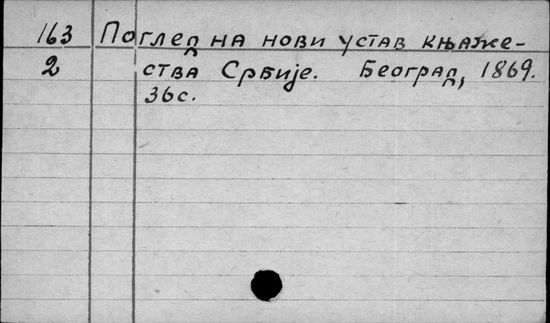 163 Поглед на нови устав књаже-
2 ства Србије. Београд, 1869.
36с.